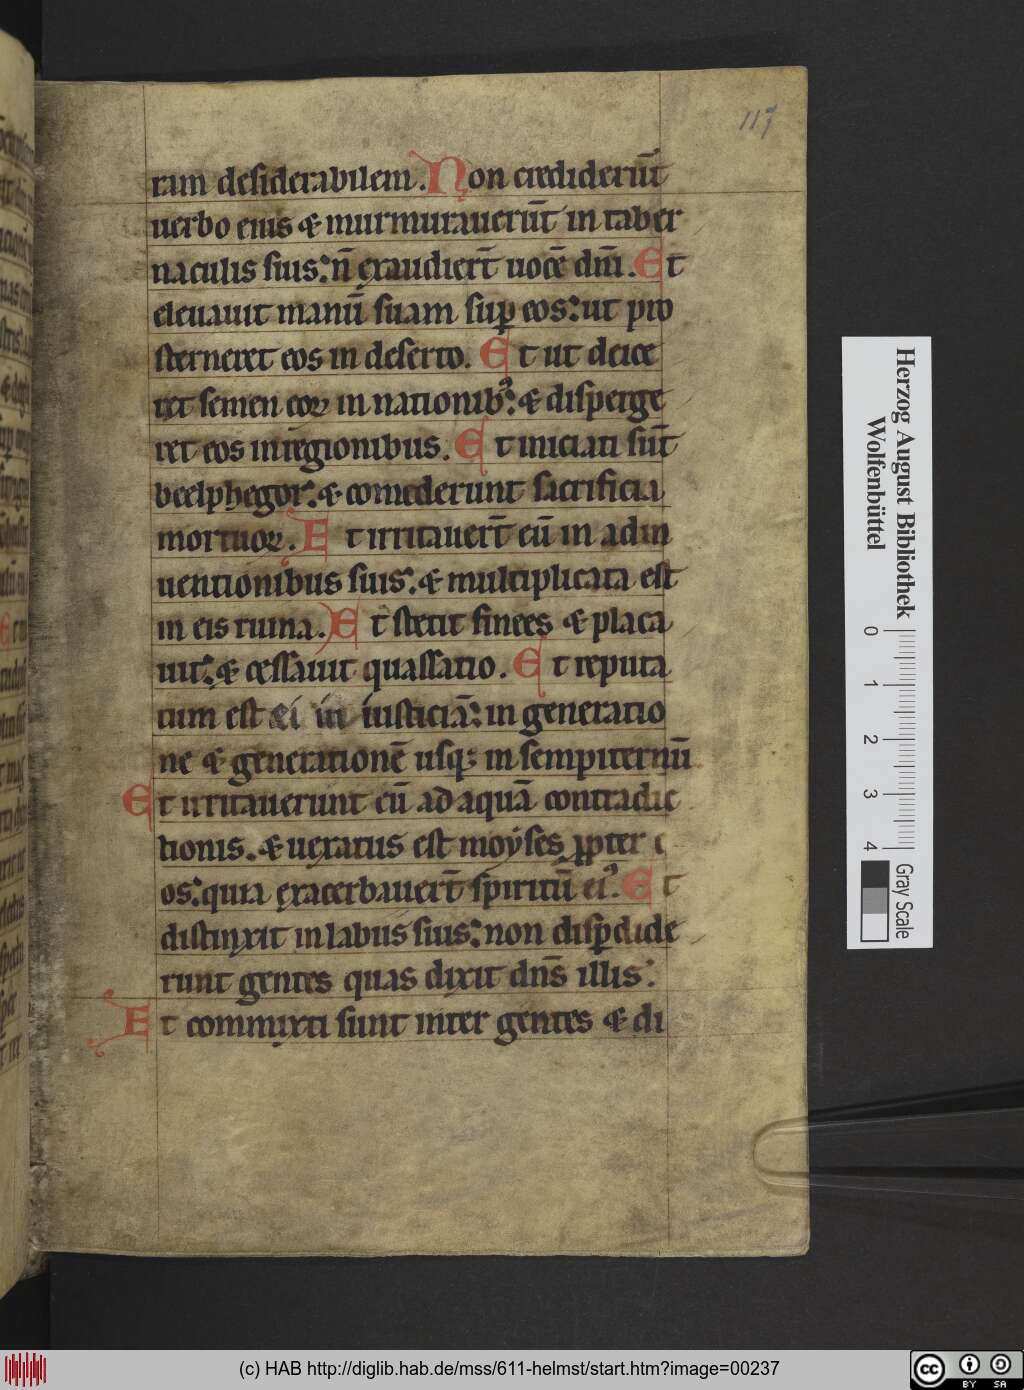 117
ram desiderabilem. Non crediderūt
uerbo eius & murmurauerūt in taber
naculis suis: n̄ exaudierт̄ uocē dn̄i. Et
eleuauit manū suam sup̄ eos: ut pro
sterneret eos in deserto. Et ut deice
ret semen eoꝝ in nationibꝰ: & disperge
ret eos in regionibus. Et iniciati sūt
beelphegor: & comederunt sacrificia
mortuoꝝ. Et irritauert̄ eū in adin
uentionibus suis: & multiplicata est
in eis ruina. Et stetit finees & placa
uit: & cessauit quassatio. Et reputa
tum est ei in iusticiā: in generatio
ne & generationē usq; in sempiternū
Et irritauerunt eū ad aquā contradic
tionis. & uexatus est moyses ꝓpter e
os: quia exacerbauert̄ spiritū eiꝰ. Et
distinxit in labiis suis: non disꝑdide
runt gentes quas dixit dn̄s illis:
Et commixti sunt inter gentes & di
Herzog August Bibliothek
Wolfenbüttel
0 1 2 3 4
Gray Scale
(c) HAB http://diglib.hab.de/mss/611-helmst/start.htm?image=00237
cc BY SA